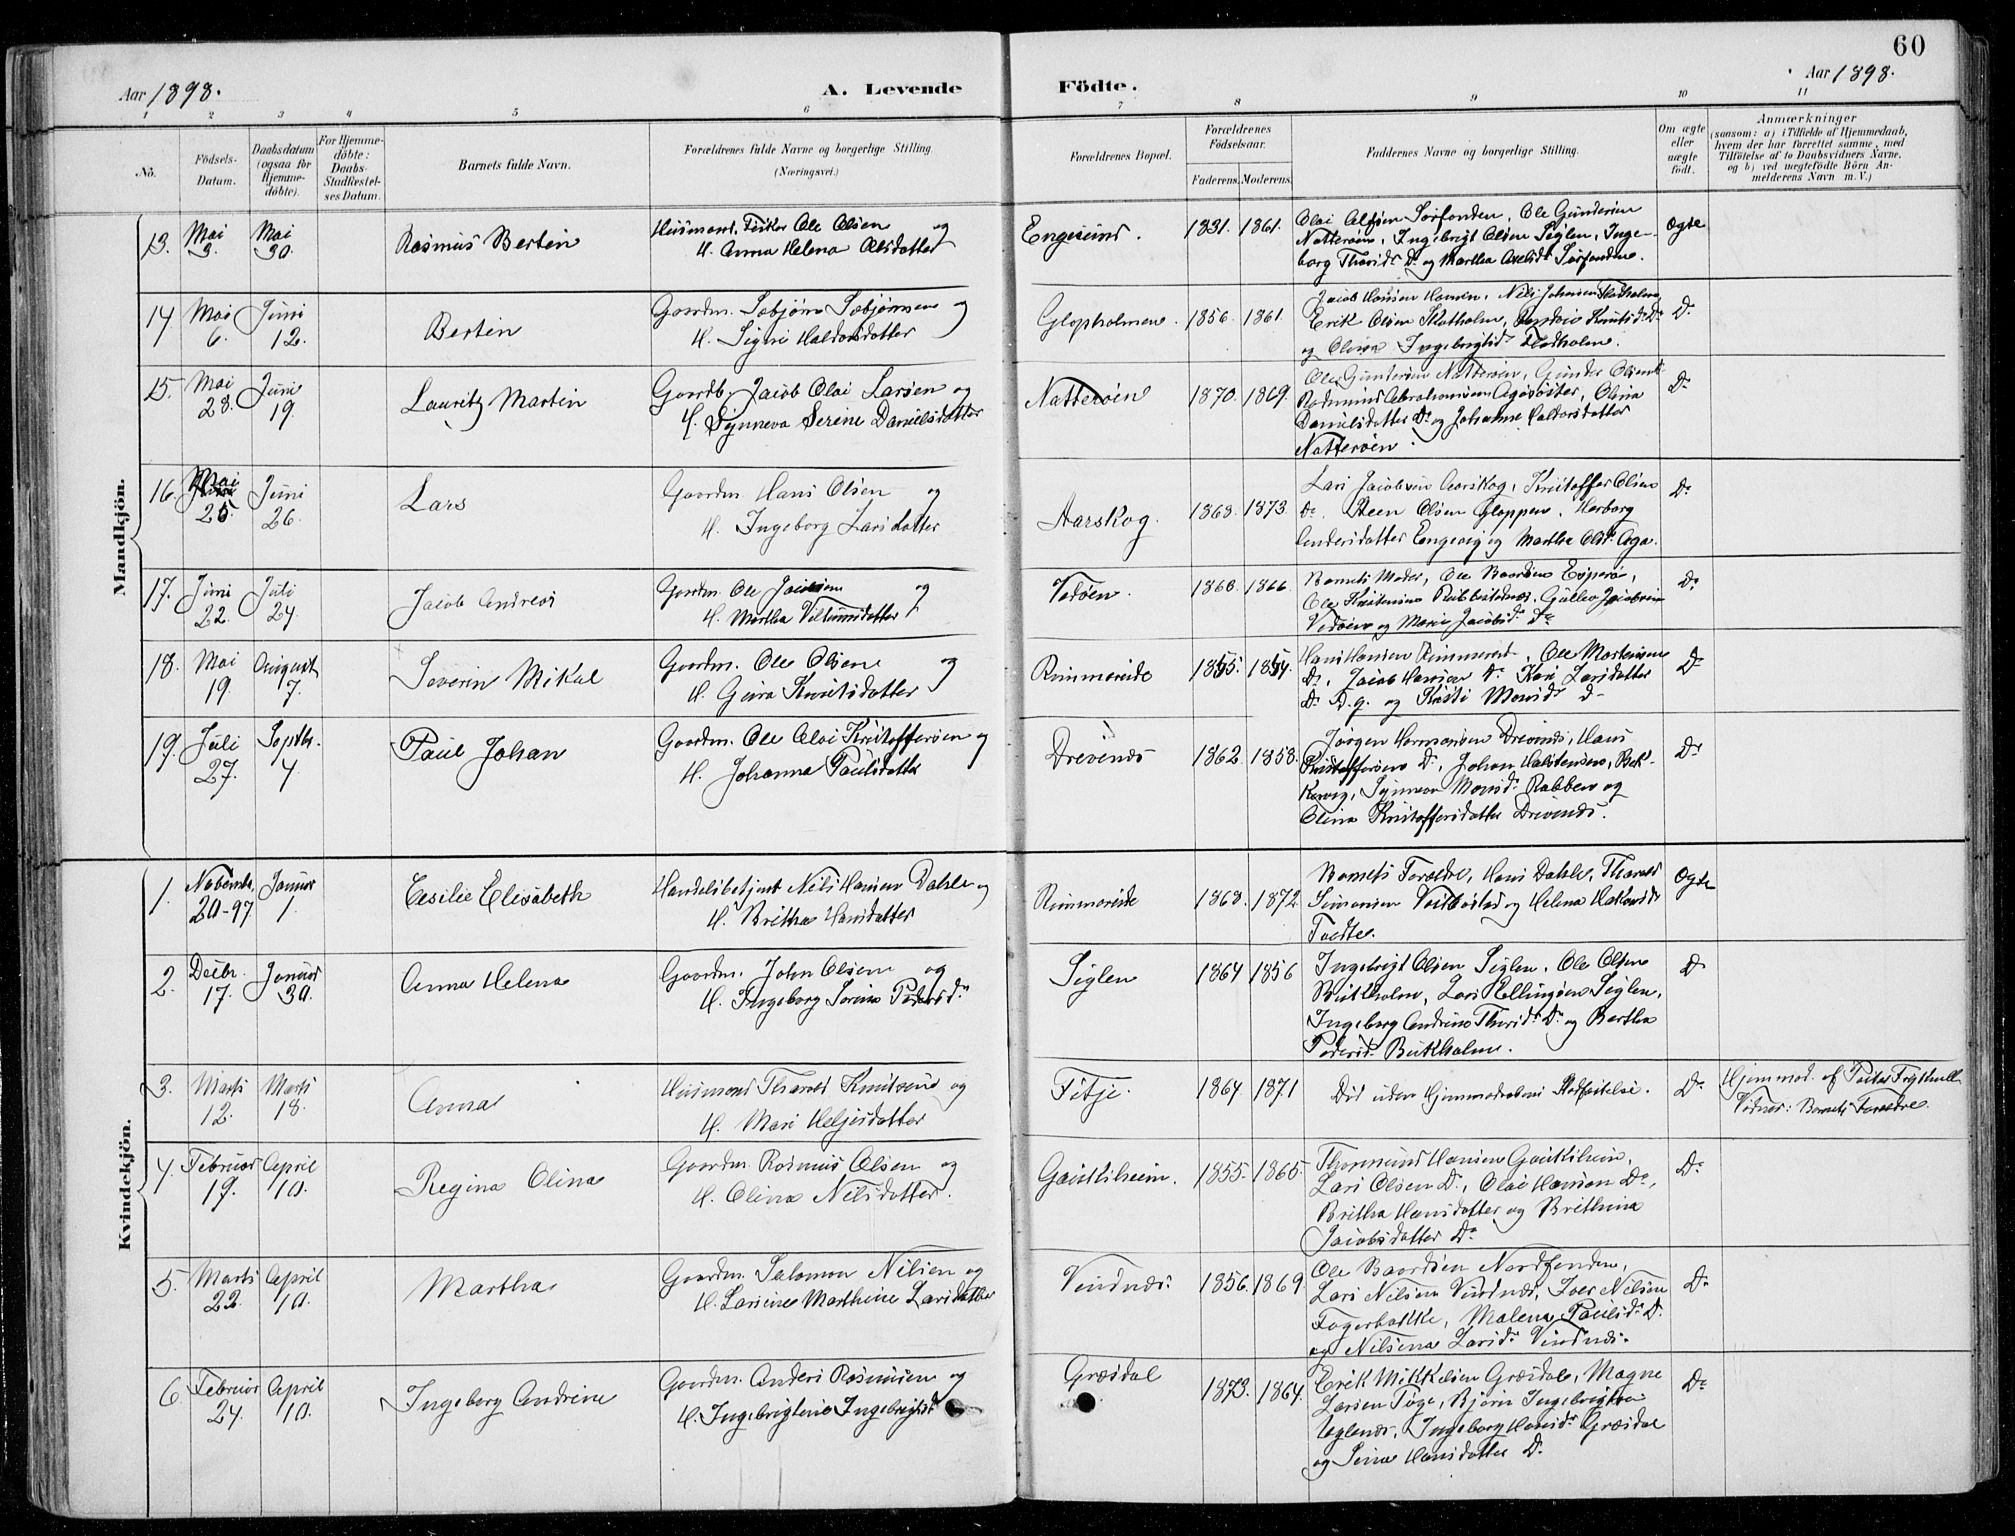 60
Aar 1898.
A. Levende
Födte.
Aar 1898.
1 2 3 4 5 6 7 8 9 10 11
No.
Födsels-
Datum.
Daabsdatum
(ogsaa for
Hjemme-
döbte).
For Hjemme-
döbte:
Daabs-
Stadfæstel-
ses Datum.
Barnets fulde Navn.
Forældrenes fulde Navne og borgerlige Stilling.
(Næringsvei.)
Forældrenes Bopæl.
Forældrenes
Födselsaar.
Faderens. Moderens.
Faddernes Navne og borgerlige Stilling.
Om ægte
eller
uægte
födt.
Anmærkninger
(saasom: a) i Tilfælde af Hjemmedaab,
hvem der har forrettet samme, med
Tilföielse af to Daabsvidners Navne,
og b) ved uægtefödte Börn An-
melderens Navn m. V.)
Mandkjön.
13. Mai 3. Mai 30. Rasmus Bertin
Husmand, Fisker Ole Olsen og
H. Anna Helena Olsdatter
Engesund. 1831. 1861.
Olai Olsen Sørfonden, Ole Gundersen
Natterøen, Ingebrigt Olsen Siglen, Inge-
borg Thorsdr. Do og Martha Axelsdr Sørfonden.
Ægte
14 Mai 6. Juni 12. Bertin
Gaardm. Sæbjørn Sæbjørnsen og
H. Signi Haldorsdatter
Glopholmen. 1856. 1861.
Jacob Hansen Nils Johansen
Erik Olsen Knutsdr Do
og Olina Ingebrigtsdr
Do
15. Mai 28. Juni 19. Lauritz Martin
Gaardb. Jacob Olai Larsen og
H. Synneva Serine Danielsdatter
Natterøen 1870. 1869.
Ole Gundersen Natterøen, Gunder Olsen
Rasmus Abrahamsen Agasøster, Olina
Danielsdatter Do og Johanne Haldorsdatter
Natterøen.
Do
16. Mai 25. Juni 26. Lars
Gaardm. Hans Olsen og
H. Ingeborg Larsdatter
Aarskog. 1868. 1873.
Lars Jacobsen Aarskog, Kristoffer Olsen
Do. Steen Olsen Gloppen, Herborg
Andersdatter Engevig og Martha Olsdr. Aga.
Do
17. Juni 22. Juli 24. Jacob Andreas
Gaardm. Ole Jacobsen og
H. Martha Viltumsdatter
Vedøen. 1868. 1866.
Barnets Moder, Ole Baardsen Espevær,
Ole Kristensen Gullev Jacobsen
Vedøen og Marie Jacobsdr. Do
Do
18. Mai 19. August 7. Severin Mikal
Gaardm. Ole Olsen og
H. Guro Knutsdatter
Rimmereide 1855. 1854.
Hans Hansen Rimmereid, Ole Mortensen
Do, Jacob Hansen Do Kari Larsdatter
Do D.g. og Kristi Monsdr Do
Do
19. Juli 27. Septbr. 4. Paul Johan
Gaardm. Ole Olai Kristoffersen og
H. Johanna Paulsdatter
Drevsnes 1862. 1858.
Jørgen Hermansen Drevsnes, Hans
Kristoffersen Do, Johan Halstensen, Bek-
kervig, Synneva Monsdr Rabben og
Olina Kristoffersdatter Drevsnes.
Do
Kvindekjön.
1. Novembr. 20-97. Januar 1. Cesilie Elisabeth
Handelsbetjent Nils Hansen Dahle og
H. Britha Hansdatter
Rimmereide 1868. 1872
Barnets Forældre, Hans Dahle, Thorvald
Simonsen og Helena Hakonsdr
Ægte
2. Decbr. 17. Januar 30. Anna Helena
Gaardm. John Olsen og
H. Ingeborg Serine Pedersdr
Siglen 1864 1856
Ingebrigt Olsen Siglen, Ole Olsen
Bukholm, Lars Ellingsen Siglen,
Ingeborg Andrine Thorsdr. Do og Bertha
Pedersdr. Bukholm.
Do
3. Marts 12. Marts 18. Anna
Husmand Tharald Knutsen og
H. Mari Heljesdatter
Fitje. 1864. 1871
Död uden Hjemmedaabens Stadfæstelse.
Do
Hjemmed. af Peter
Vidner: Barnets Forældre.
4. Februar 19. April 10. Regina Olina
Gaardm. Rasmus Olsen og
H. Olina Nilsdatter.
Gautisheim. 1855. 1865
Thormund Hansen Gautisheim,
Lars Olsen D., Olai Hansen Do,
Britha Hansdatter og Brithina
Jacobsdatter Do
Do
5. Marts 22. April 10. Martha
Gaardm. Salomon Nilsen og
H. Larsine Marthine Larsdatter
Vindnæs. 1856. 1869.
Ole Baardsen Nordfonden,
Lars Nilsen Vindnæs, Iver Nilsen
Fagerbakke, Malena Paulsdr. D.
og Nilsina Larsdr. Vindnæs.
Do
6. Februar 24. April 10. Ingeborg Andrine
Gaardm. Anders Rasmusen og
H. Ingebrigtine Ingebrigtsdr
Græsdal 1873. 1864.
Erik Mikkelsen Græsdal, Magne
Larsen Tøge, Bjørn Ingebrigtsen
Uglenes, Ingeborg Hansdr. Græsdal
og Sina Hansdatter Do
Do